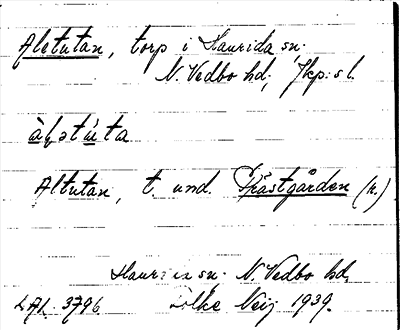 Aletutan, torp i Haurida sn.
N. Vedbo hd, Jkp:s l.
Altutan, t. und. Prästgården (r.)
Haurida sn. N. Vedbo hd,
3796. Folke Neij 1939.